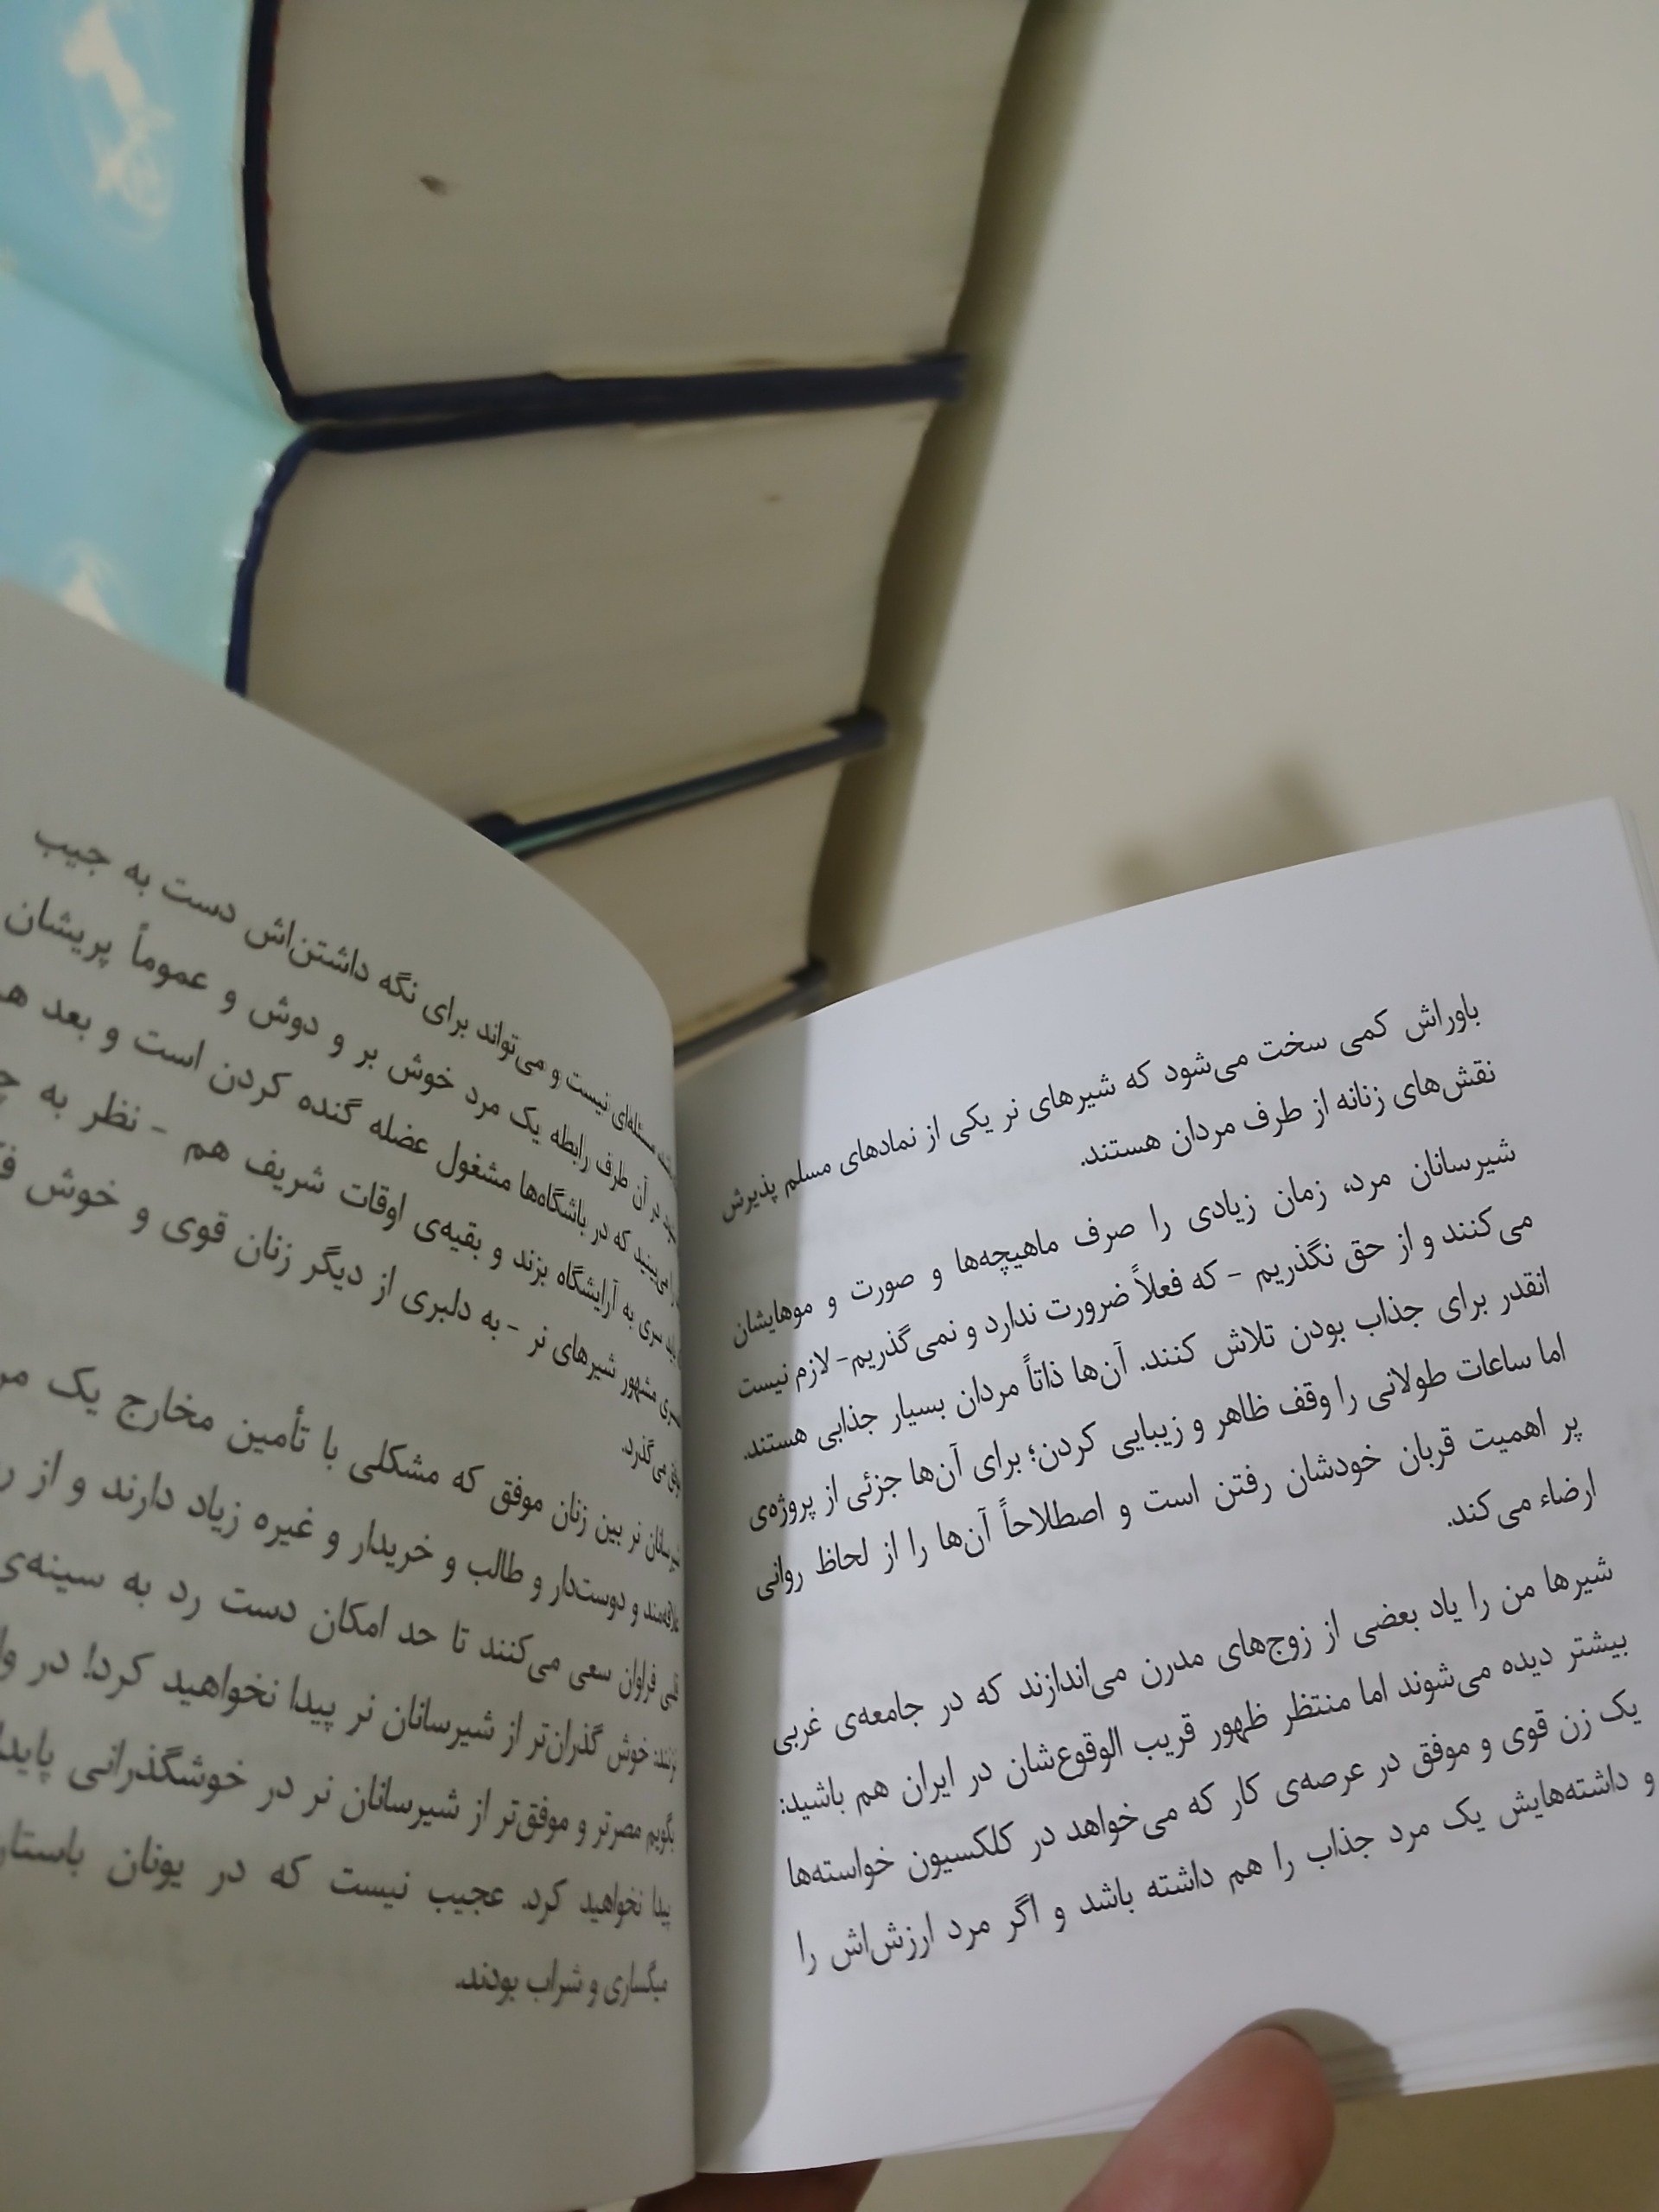 باوراش کمی سخت می‌شود که شیرهای نر یکی از نمادهای مسلم پذیرش
نقش‌های زنانه از طرف مردان هستند.
شیرسانان مرد، زمان زیادی را صرف ماهیچه‌ها و صورت و موهایشان
می‌کنند و از حق نگذریم - که فعلاً ضرورت ندارد و نمی‌گذریم- لازم نیست
انقدر برای جذاب بودن تلاش کنند. آن‌ها ذاتاً مردان بسیار جذابی هستند.
اما ساعات طولانی را وقف ظاهر و زیبایی کردن؛ برای آن‌ها جزئی از پروژه‌ی
پر اهمیت قربان خودشان رفتن است و اصطلاحاً آن‌ها را از لحاظ روانی
ارضاء می‌کند.
شیرها من را یاد بعضی از زوج‌های مدرن می‌اندازند که در جامعه‌ی غربی
بیشتر دیده می‌شوند اما منتظر ظهور قریب الوقوع‌شان در ایران هم باشید:
یک زن قوی و موفق در عرصه‌ی کار که می‌خواهد در کلکسیون خواسته‌ها
و داشته‌هایش یک مرد جذاب را هم داشته باشد و اگر مرد ارزش‌اش را
مسئله‌ای نیست و می‌تواند برای نگه داشتن‌اش دست به جیب
در آن طرف رابطه یک مرد خوش بر و دوش و عموماً پریشان
را می‌بینید که در باشگاه‌ها مشغول عضله گنده کردن است و بعد
باید سری به آرایشگاه بزند و بقیه‌ی اوقات شریف هم - نظر به
مشهور شیرهای نر - به دلبری از دیگر زنان قوی و خوش
می‌گذرد.
شیرسانان نر بین زنان موفق که مشکلی با تأمین مخارج یک
علاقه‌مند و دوست‌دار و طالب و خریدار و غیره زیاد دارند و از
فراوان سعی می‌کنند تا حد امکان دست رد به سینه‌ی
نزنند: خوش گذران‌تر از شیرسانان نر پیدا نخواهید کرد! در
بگویم مصرتر و موفق‌تر از شیرسانان نر در خوشگذرانی
پیدا نخواهید کرد. عجیب نیست که در یونان
میگساری و شراب بودند.